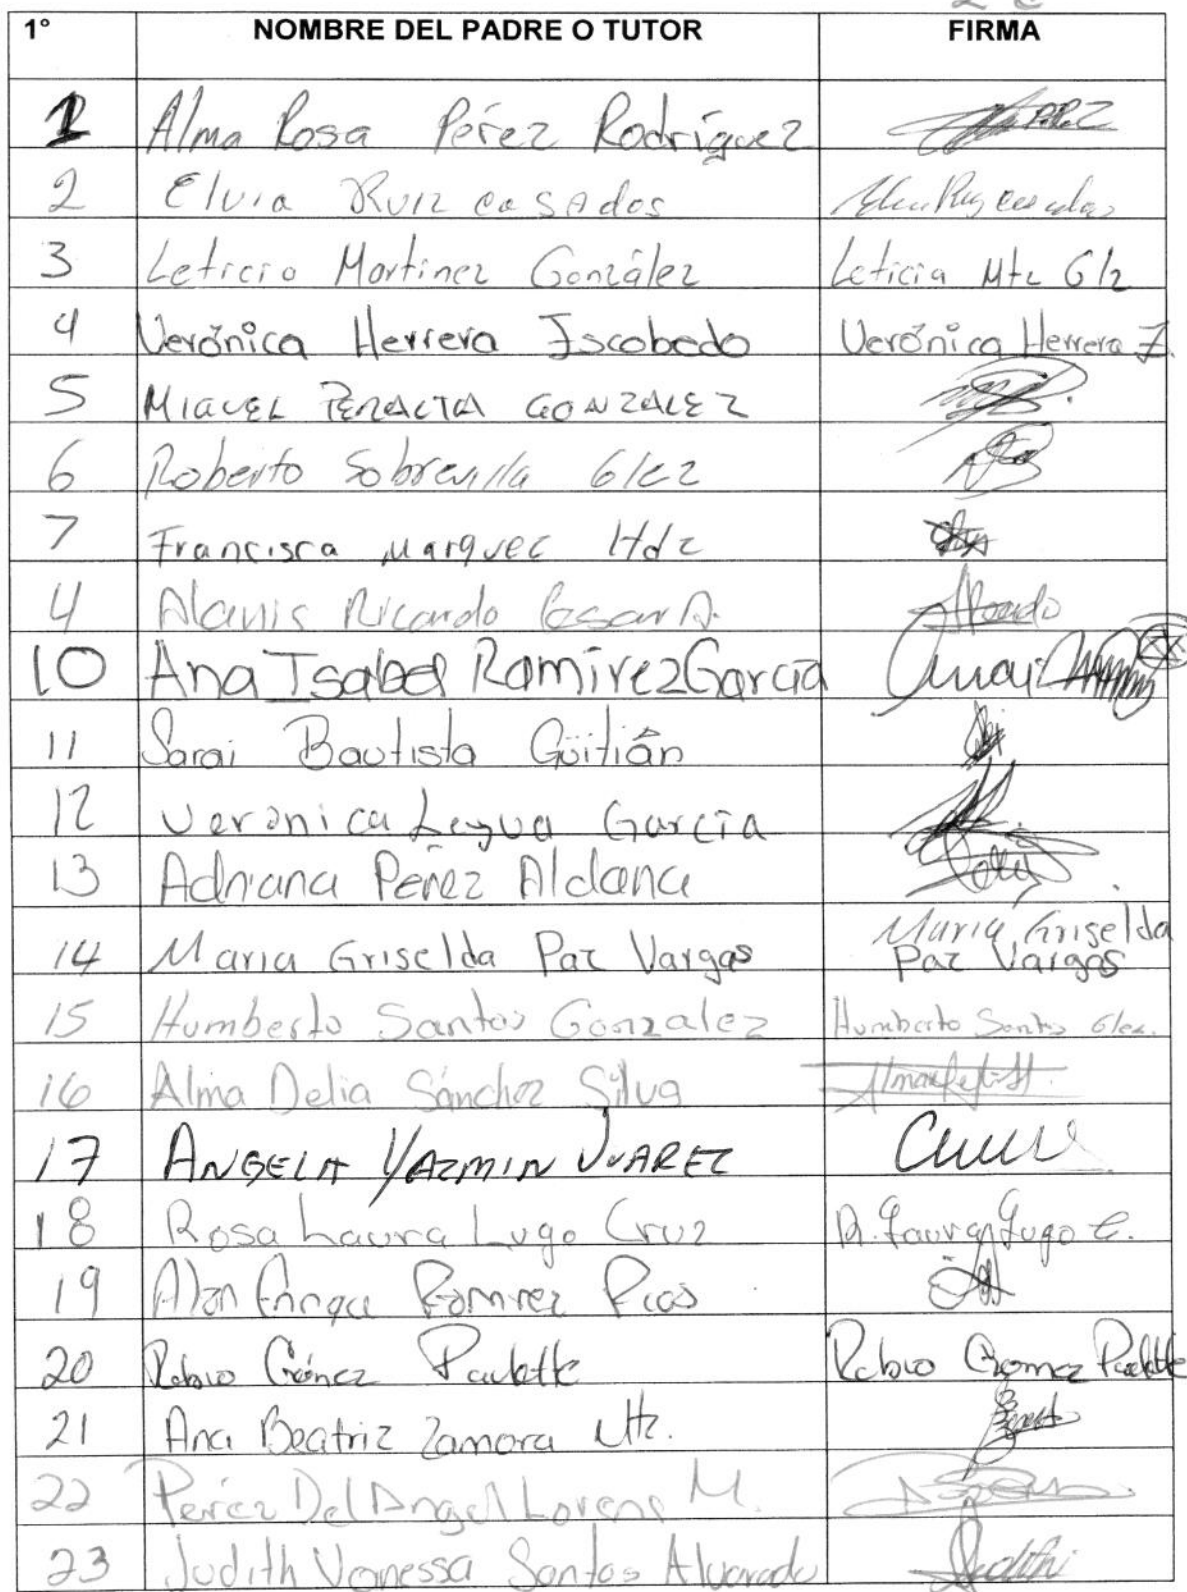 2° C
1° NOMBRE DEL PADRE O TUTOR FIRMA
1 Alma Rosa Pérez Rodríguez PEREZ
2 Elvia Ruiz casados Elvia Ruiz casados
3 Leticia Martinez González Leticia Mtz Glz
4 Verónica Herrera Iscobedo Verónica Herrera I.
5 MIGUEL PERALTA GONZALEZ
6 Roberto Sobrevilla Glez
7 Francisca Marquec Hdz
4 Alanis Ricardo Cesar A.
10 Ana Isabel Ramírez García
11 Sarai Bautista Güitián
12 Veronica Leyva García
13 Adriana Perez Aldana
14 Maria Griselda Paz Vargas Maria Griselda
Paz Vargas
15 Humberto Santos Gonzalez Humberto Santos Glez.
16 Alma Delia Sánchez Silva
17 ANGELA YAZMIN JUAREZ
18 Rosa Laura Lugo Cruz R. Laura Lugo C.
19 Alan Enrique Ramirez Rios
20 Rubio Gómez Paulette Rubio Gomez Paulette
21 Ana Beatriz Zamora Mtz.
22 Perez Del Angel Lorena M.
23 Judith Vanessa Santos Alvarado Judith